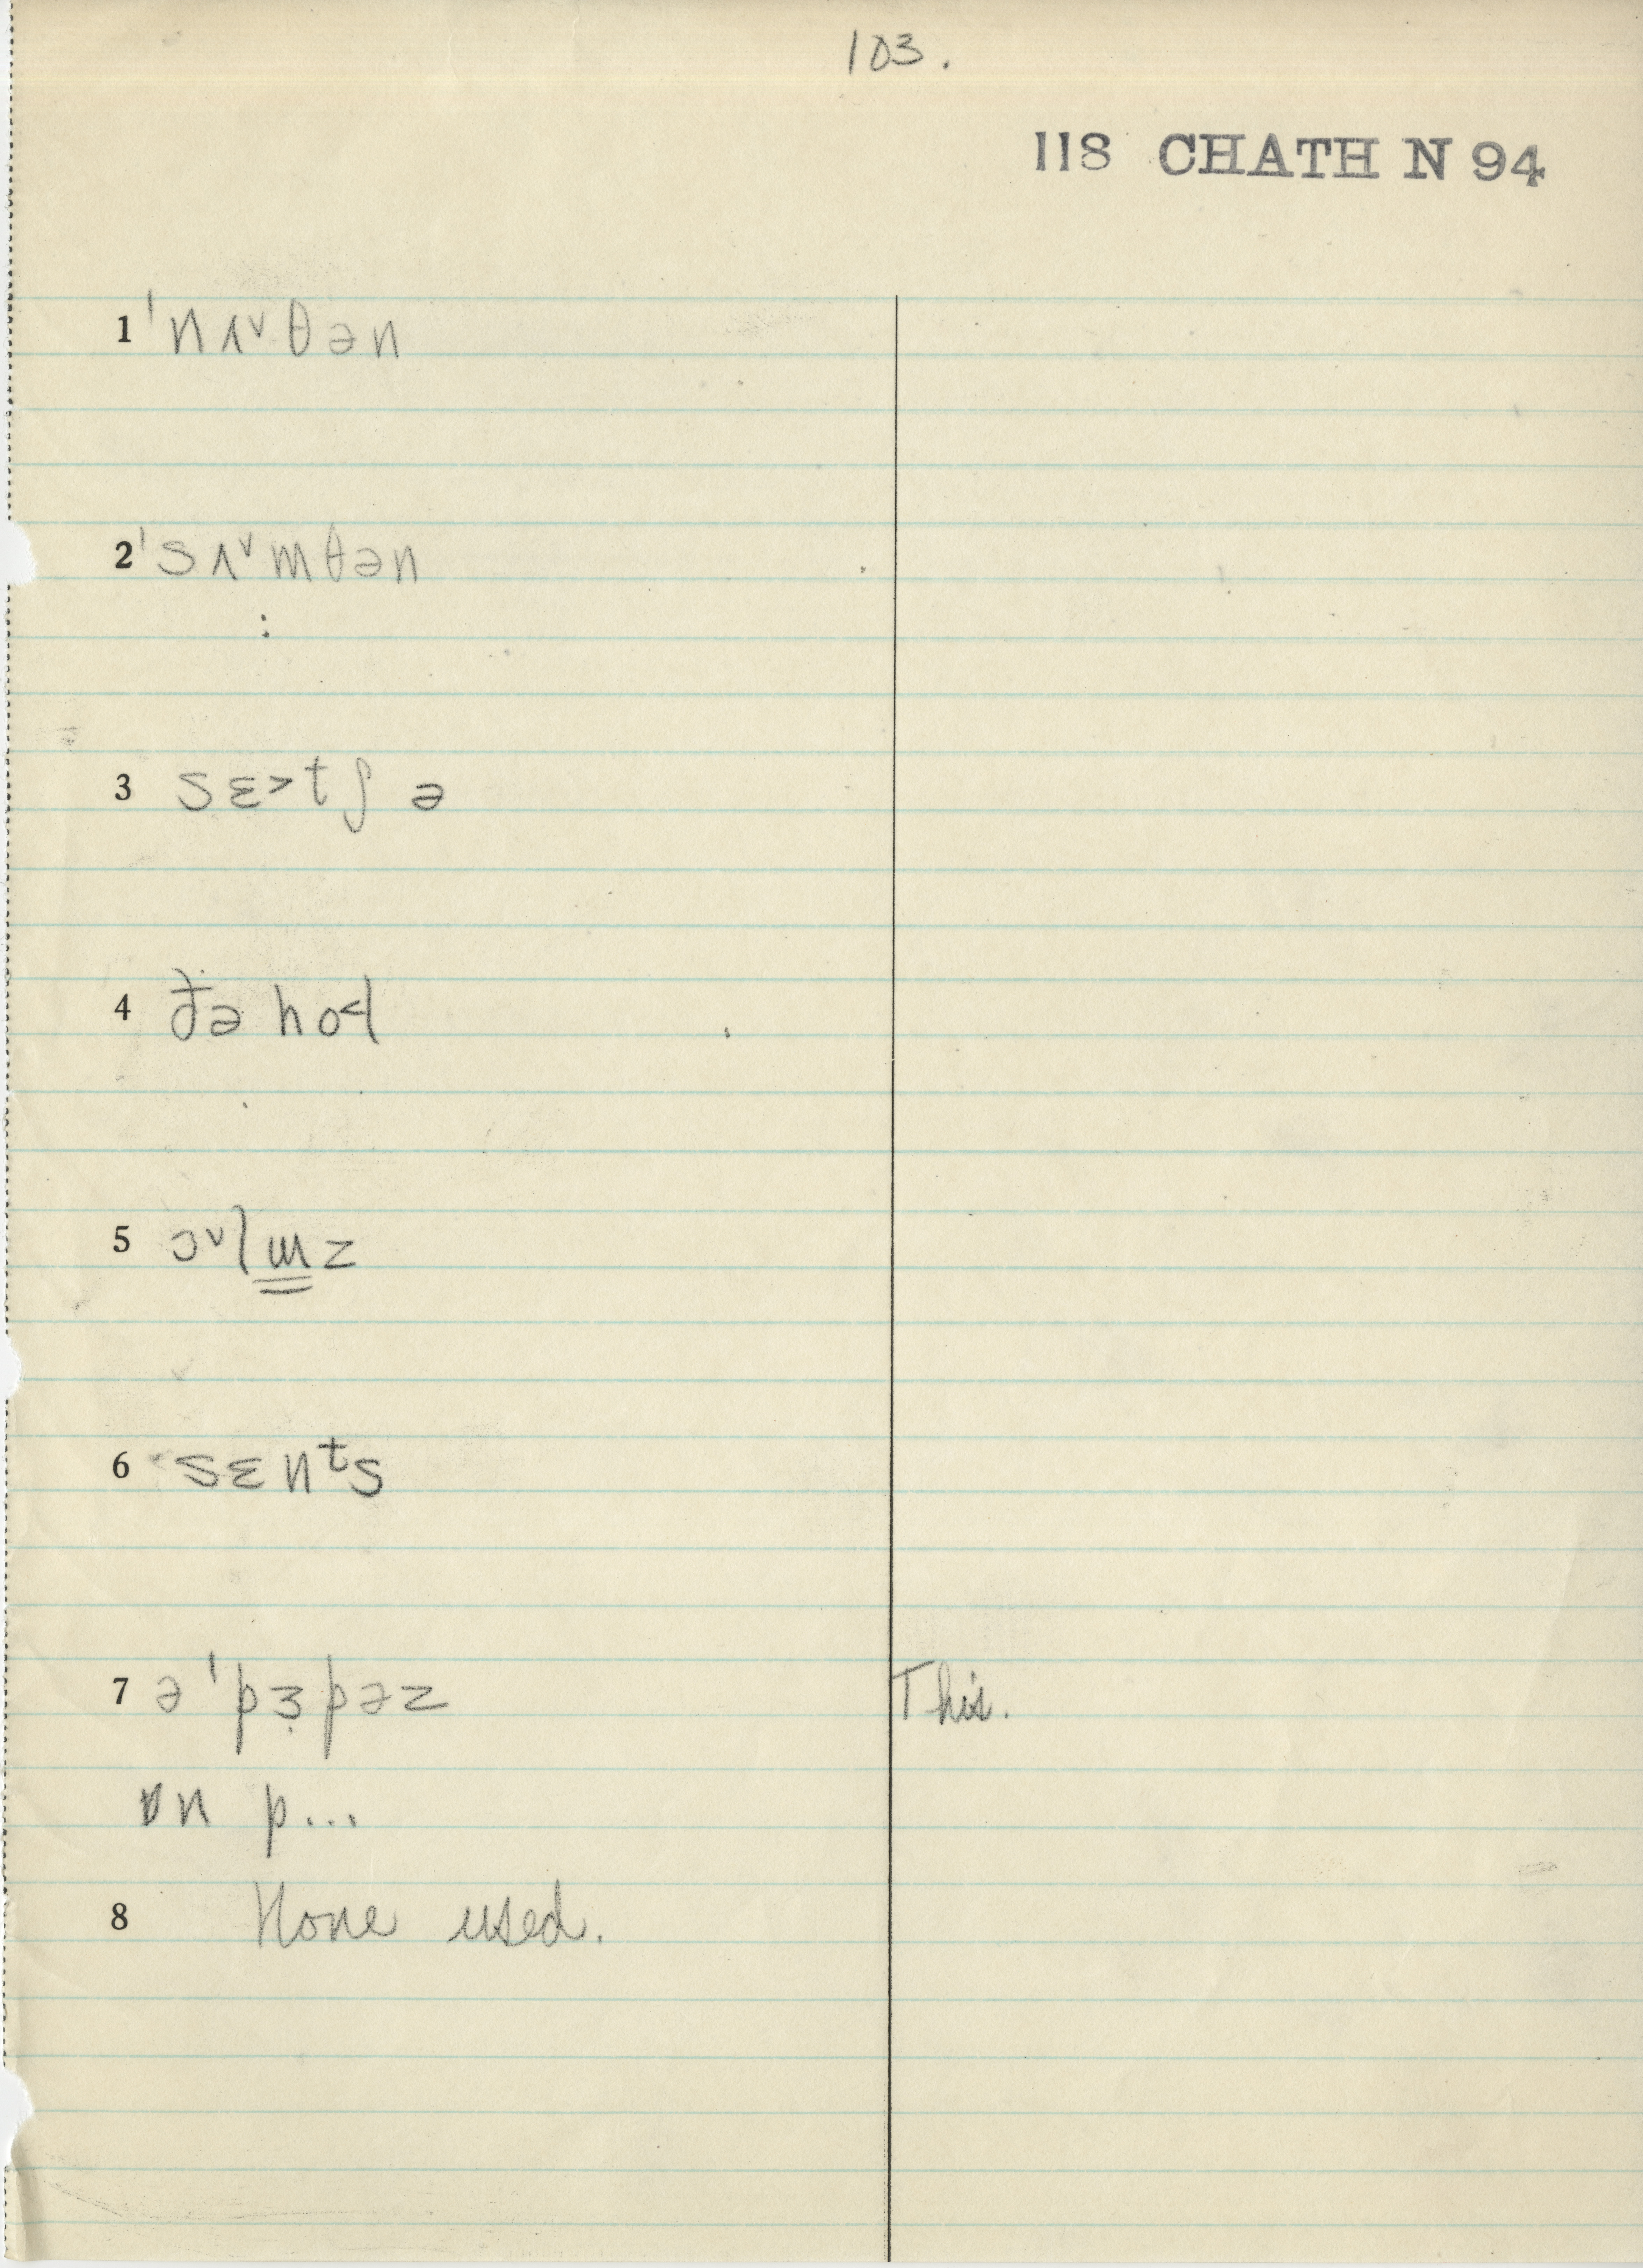 103.
118 CHATH N 94
1 ˈnʌ˅θən
2 ˈsʌ˅mθən
3 sɛ˃tʃ ə
4 ðə ho˂l
5 ɔ˅lm̳z
6 sɛnᵗs
7 əˈpɜ̣pəz This.
ɒn p...
8 None used.